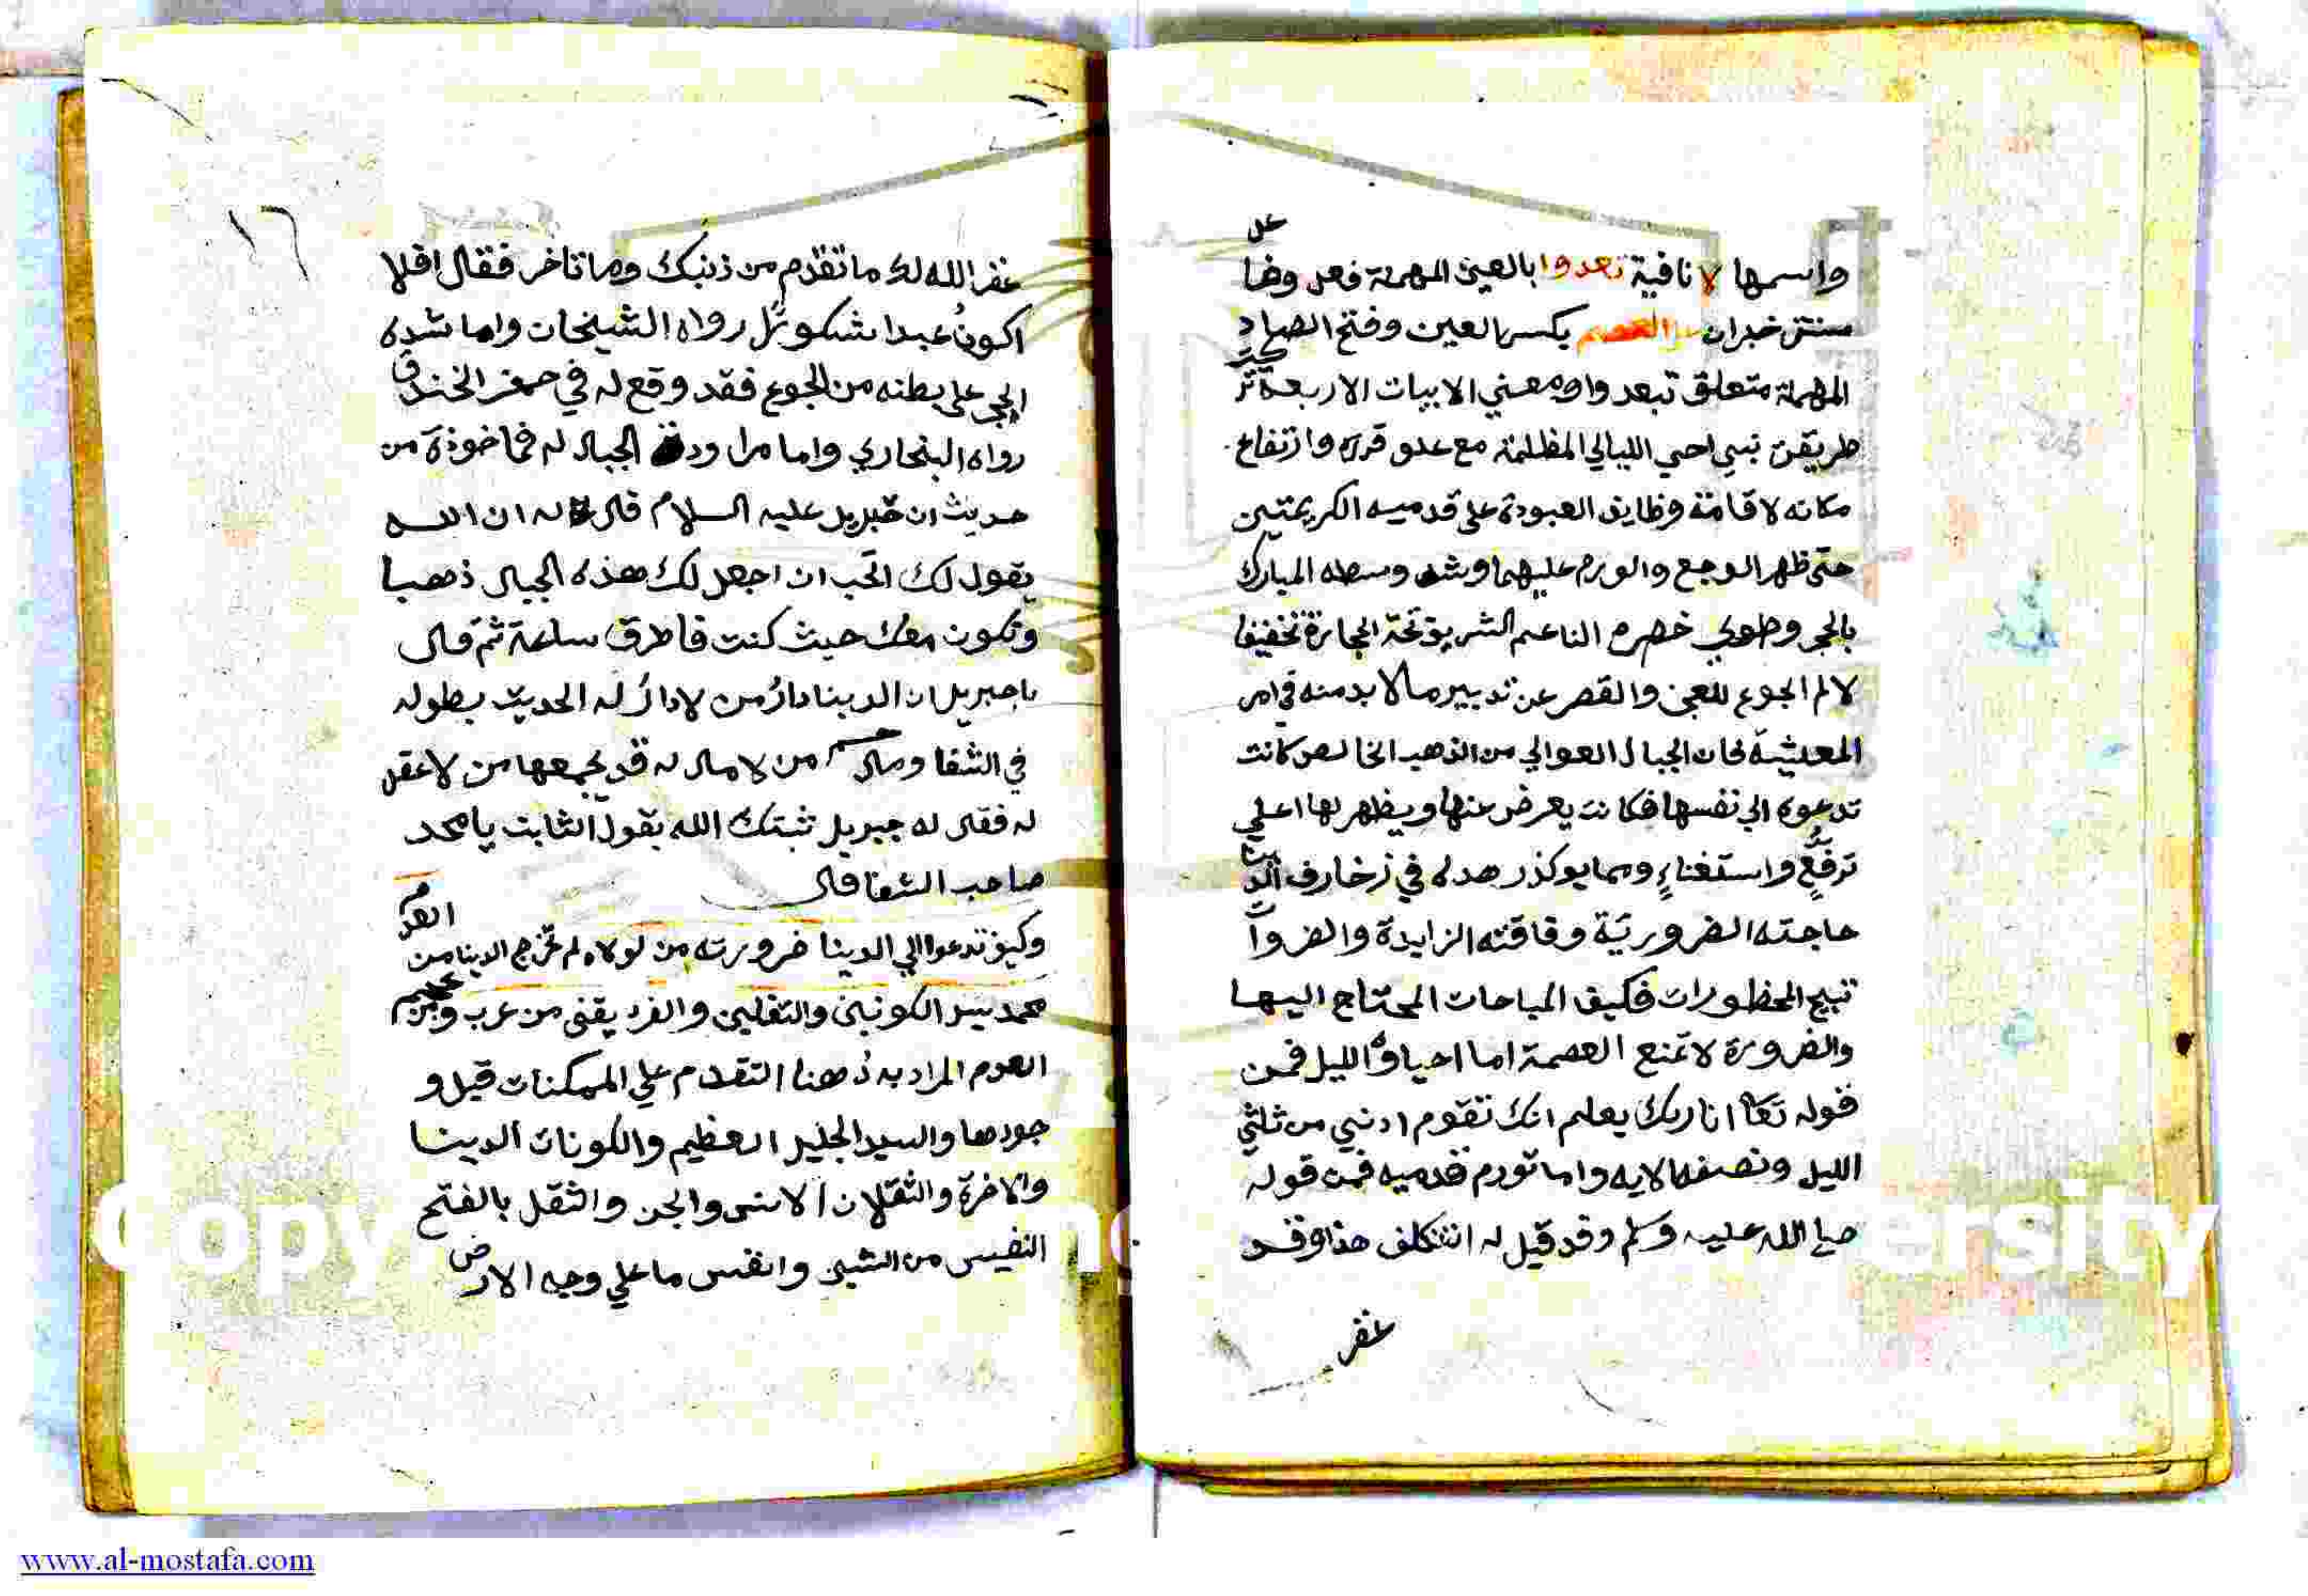 واسمها لا نافية تعدوا بالعين المهملة فعل وفا
على
خبران العصم بكسر العين وفتح الصاد
المهملة متعلق تبعدوا ومعني الابيات الاربعة
طريقة نبي احي الليالي المظلمة مع علو قدره وارتفاع
مكانه لاقامة وظايف العبودة على قدميه الكريمتين
حتى ظهر الوجع والورم عليهما وشد وسطه المبارك
بالحجر وطوي خصره الناعم الشريف تحة الحجارة تخفيفا
لالم الجوع للعجز والقصر عن تدبير ما لا بد منه في امر
المعيشة فان الجبال العوالي من الذهب الخالص كانت
تدعوه الي نفسها فكانت يعرض عنها ويظهر لها اعلي
ترفع واستغناء ومما يوكد زهده في زخارف الدنيا
حاجته الضرورية وفاقته الزايدة والضروآ
تبيح المحظورات فكيف المباحات المحتاج اليها
والضرورة لا تمنع العصمة اما احياؤ الليل فمن
قوله تعا ان ربك يعلم انك تقوم ادني من ثلثي
الليل ونصفه الايه واما تورم قدميه فمن قوله
صلي الله عليه وسلم وقد قيل له اتتكلف هذا وقد
غفر
١٦
غفر الله لك ما تقدم من ذنبك وما تاخر فقال افلا
اكون عبدا شكورا رواه الشيخان واما شده
الحجر على بطنه من الجوع فقد وقع له في حفر الخندق
رواه البخاري واما مراودة الجبال له فماخوذة من
حديث ان جبريل عليه السلام قال له ان الله
يقول لك اتحب ان اجعل لك هذه الجبال ذهبا
وتكون معك حيث كنت فاطرق ساعة ثم قال
يا جبريل ان الدينا دار من لا دار له الحديث بطوله
في الشفا ومال من لا مال له قد يجمعها من لا عقل
له فقال له جبريل ثبتك الله بقول الثابت يا محمد
صاحب الشفا قال
وكيف تدعوا الي الدينا ضرورته من لولاه لم تخرج الدينا من
العدم
محمد سيد الكونين والثقلين والفريقين من عرب ومن عجم
العدم المراد به ههنا التقدم علي الممكنات قبل و
جودها والسيد الجليل العظيم والكونان الدينا
والاخرة والثقلان الانس والجن والثقل بالفتح
النفيس من الشيي وانفس ما علي وجه الارض
www.al-mostafa.com